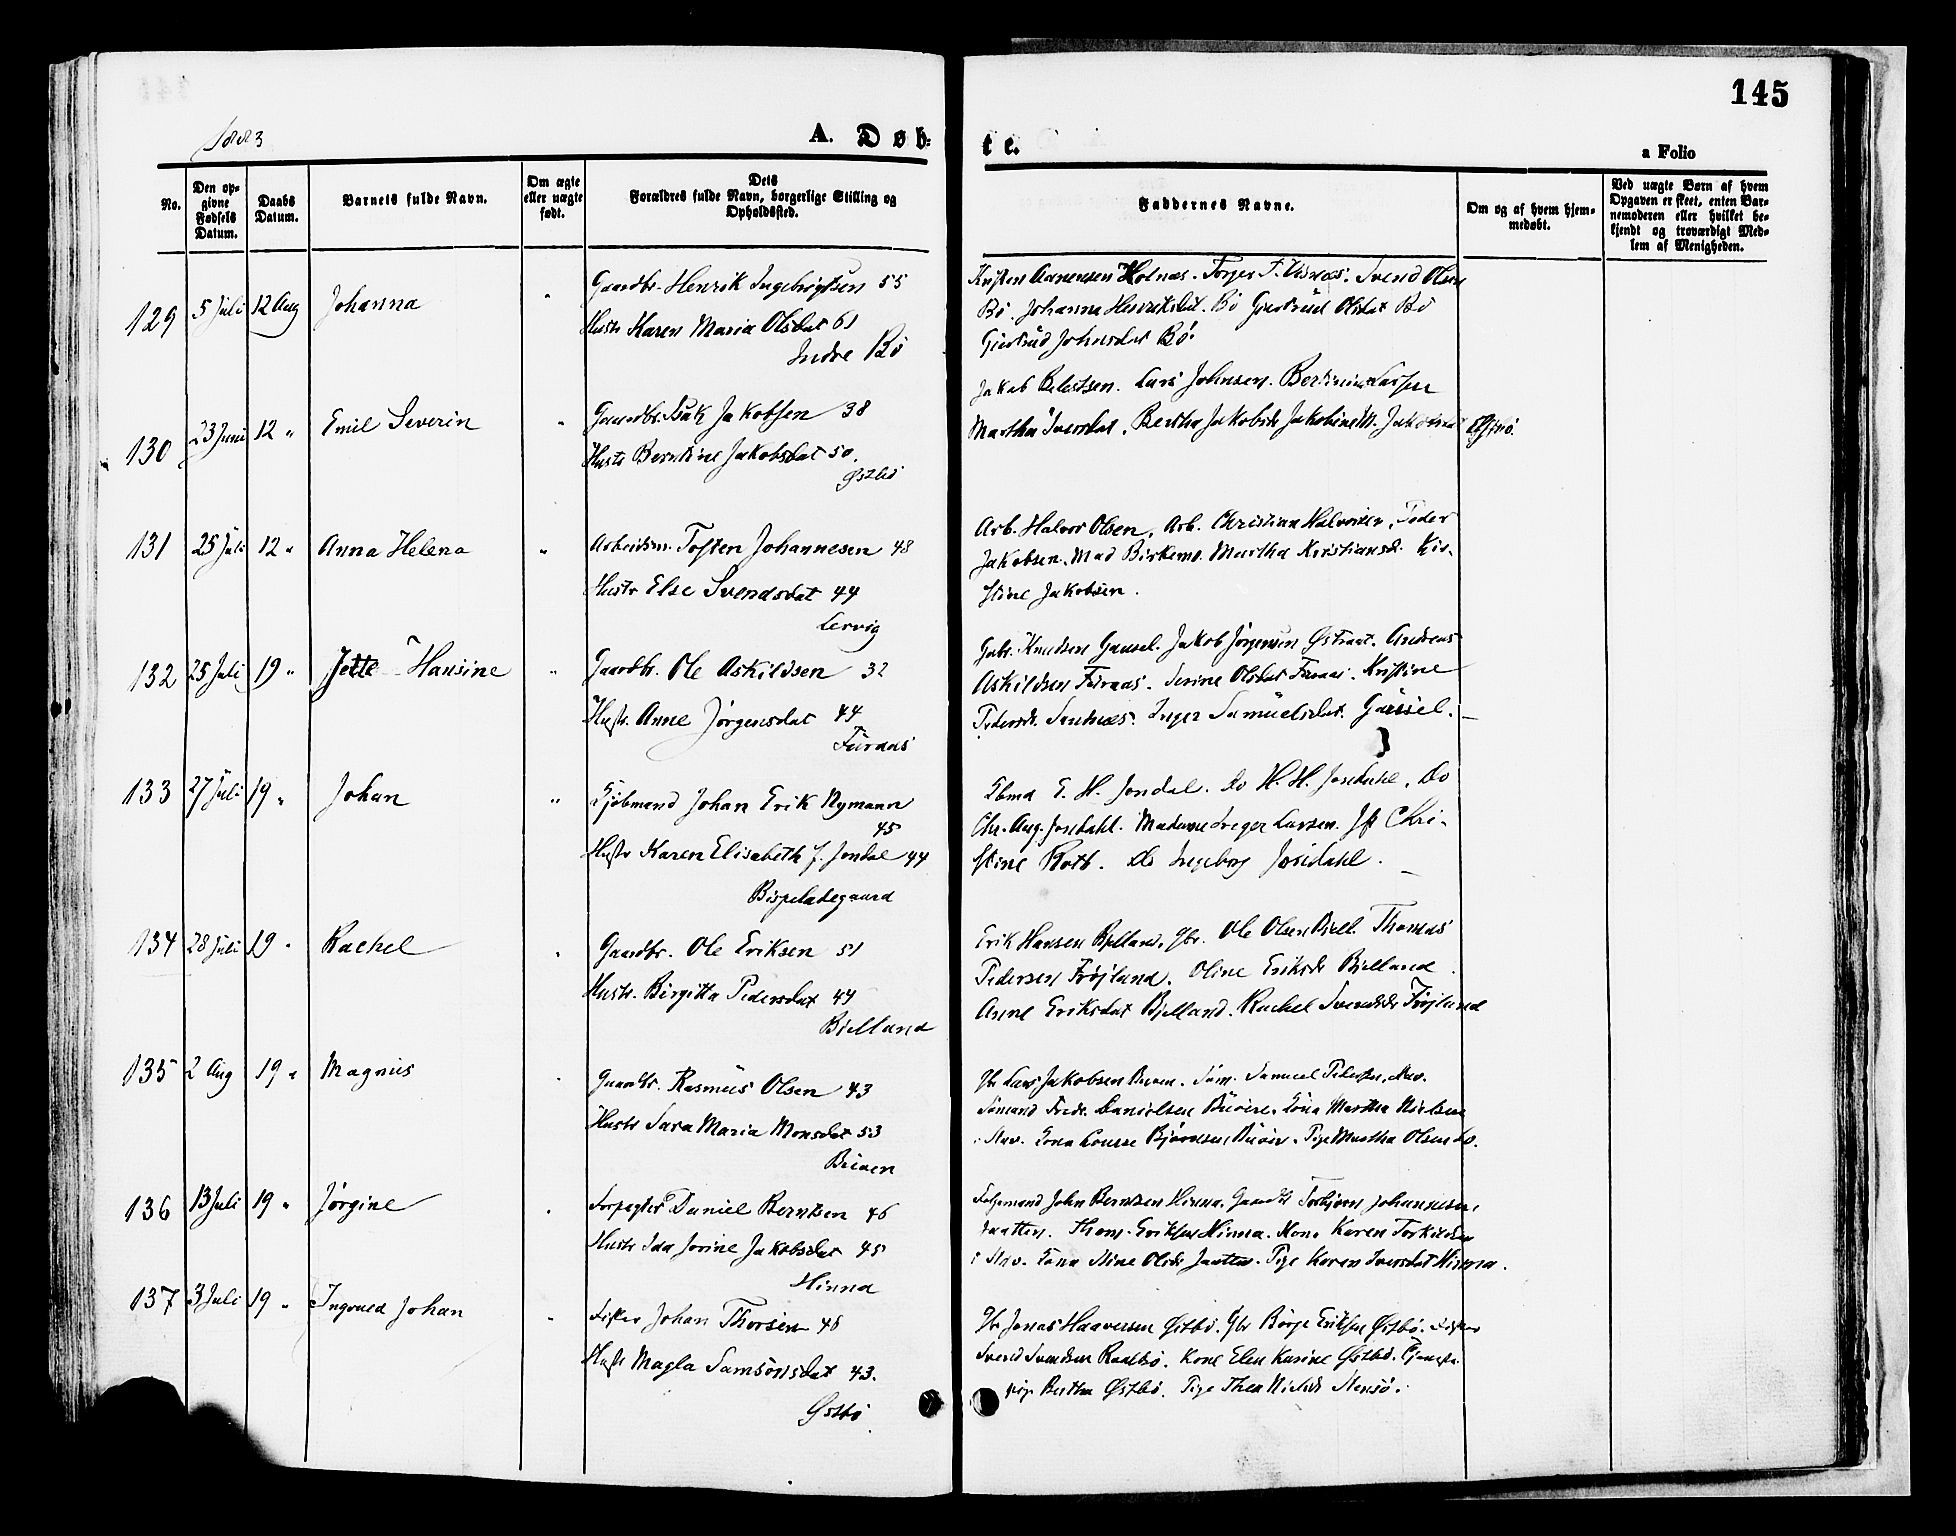 145
1883
A. Døb-
te.
a Folio
No.
Den op-
givne
Fødsels
Datum.
Daabs
Datum.
Barnets fulde Navn.
Om ægte
eller uægte
født.
Dets
Forældres fulde Navn, borgerlige Stilling og
Opholdssted.
Faddernes Navne.
Om og af hvem hjem-
medøbt.
Ved uægte Børn af hvem
Opgaven er skeet, enten Bar-
nemoderen eller hvilket be-
kjendt og troværdigt Med-
lem af Menigheden.
129 5 Juli 12 Aug Johanna " Gaardbr. Henrik Ingebrigtsen 55
Hustr Karen Maria Olsdat 61
Indre Bø
Holnæs. Torger T. Svend Olsen
Bø. Johanna Henriksdat. Bø Gjertrud Olsdat Bø
Gjertrud Johnsdat Bø.
130 23 Juni 12 " Emil Severin " Gaardbr. Isak Jakobsen 38
Hustr Berntine Jakobsdat 50.
Østbø
Jakob Lars Johnsen.
Martha Iversdat. Bertha Jakobsdt
131 25 Juli 12 " Anna Helena " Arbeidsm. Tosten Johannesen 48
Hustr Else Svendsdat 44
Lervig
Arb. Halvor Olsen, Arb. Christian Halvorsen, Peder
Jakobsen. Mad Birkemo. Martha Kristiansd. Kir-
stine Jakobsen.
132 25 Juli 19 " Jette Hansine " Gaardbr. Ole Askildsen 32
Hustr. Anne Jørgensdat 44
Furaas
Gabr. Knudsen Gausel. Jakob Jørgensen Østraat. Andreas
Askildsen Furaas. Serine Olsdat Furaas. Kristine
Pedersdt. Sandnæs. Inger Samuelsdat. Gausel.
133 27 Juli 19 " Johan " Kjøbmand Johan Erik Nymann
45
Hustr Karen Elisabeth J. Jondal 44
Bispeladegaard
Kbmd E. H. Jondal. Do H. H. Josdahl. Do
Chr. Aug. Josdahl. Madame Larsen. Jf Chri-
stine Rott. Do Ingeborg Josdahl.
134 28 Juli 19 " Rachel " Gaardbr. Ole Eriksen 51
Hustr. Birgitta Pedersdat 44
Bjelland
Erik Hansen Bjelland. Gbr. Ole Olsen Bjell. Thomas
Pedersen Frøjland. Oline Eriksdt Bjelland
Anne Eriksdat Bjelland. Rachel Svendsdt Frøjland
135 2 Aug 19 " Magnus " Gaardbr. Rasmus Olsen 43
Hustr Sara Maria Monsdat 53
Buøen
Gbr Lars Jakobsen Buøen. Søm. Samuel Pedersen, Stav.
Sømand Fredr. Danielsen Buøen. Kona Martha Nielsen
i Stav. Kona Bjørnsen, Buøen. Pige Martha Olsen do.
136 13 Juli 19 " Jørgine " Forpagter Daniel Berntsen 46
Hustr Ida Jorine Jakobsdat 45
Hinna
John Berntsen Hinna. Gaardbr Torbjørn Johannesen,
Jaatten. Thom. Eriksen Hinna. Kone Karen Torkildsen
i Stav. Kona Stine Olsdt Jaatten. Pige Karen Iversdat Hinna.
137 3 Juli 19 " Ingvald Johan " Fisker Johan Thorsen 46
Hustr Magla Samsonsdat 43.
Østbø.
Gbr Jonas Haaversen Østbø. Gbr Børge Eriksen Østbø. Fisker
Svend Svendsen Kone Elen Karine Østbø.
pige Bertha Østbø. Pige Thea Nielsdt